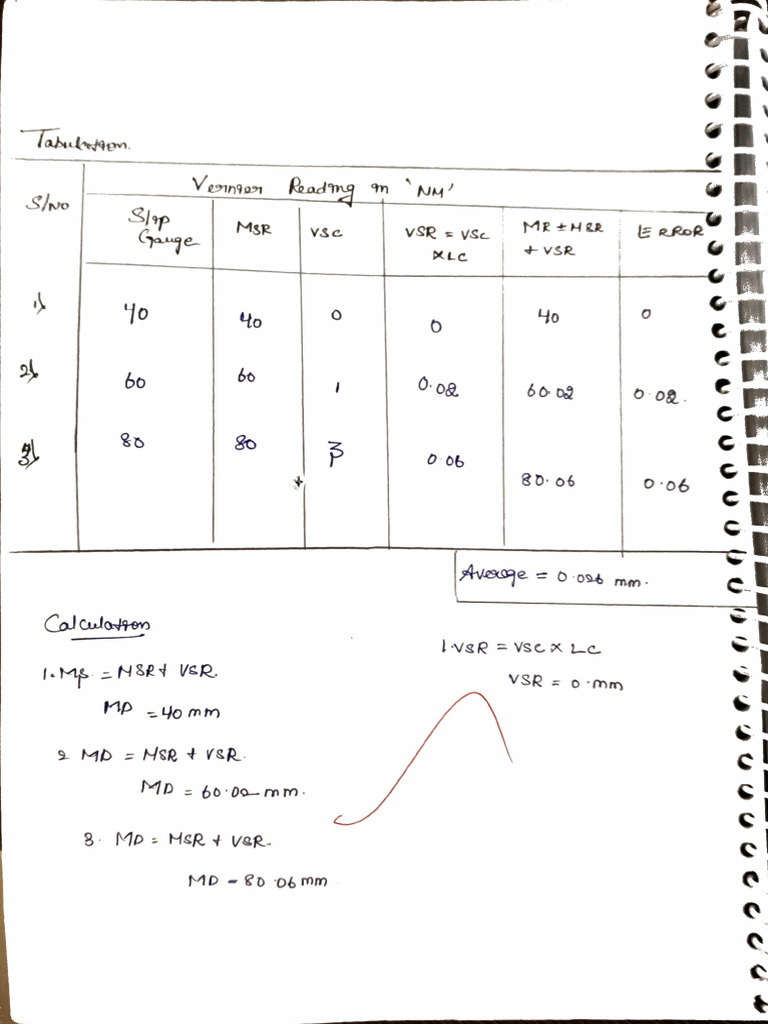 Tabulation.
S/No
Vernier Reading in 'NM'
Slip Gauge MSR VSC VSR = VSC × LC MR ± MSR + VSR ERROR
1) 40 40 0 0 40 0
2) 60 60 1 0.02 60.02 0.02.
3) 80 80 3 0.06 80.06 0.06
Average = 0.026 mm.
Calculation
1. VSR = VSC × LC
VSR = 0.mm
1. = MSR + VSR.
MD = 40 mm
2 MD = MSR + VSR.
MD = 60.02 mm.
3. MD = MSR + VSR.
MD - 80.06 mm